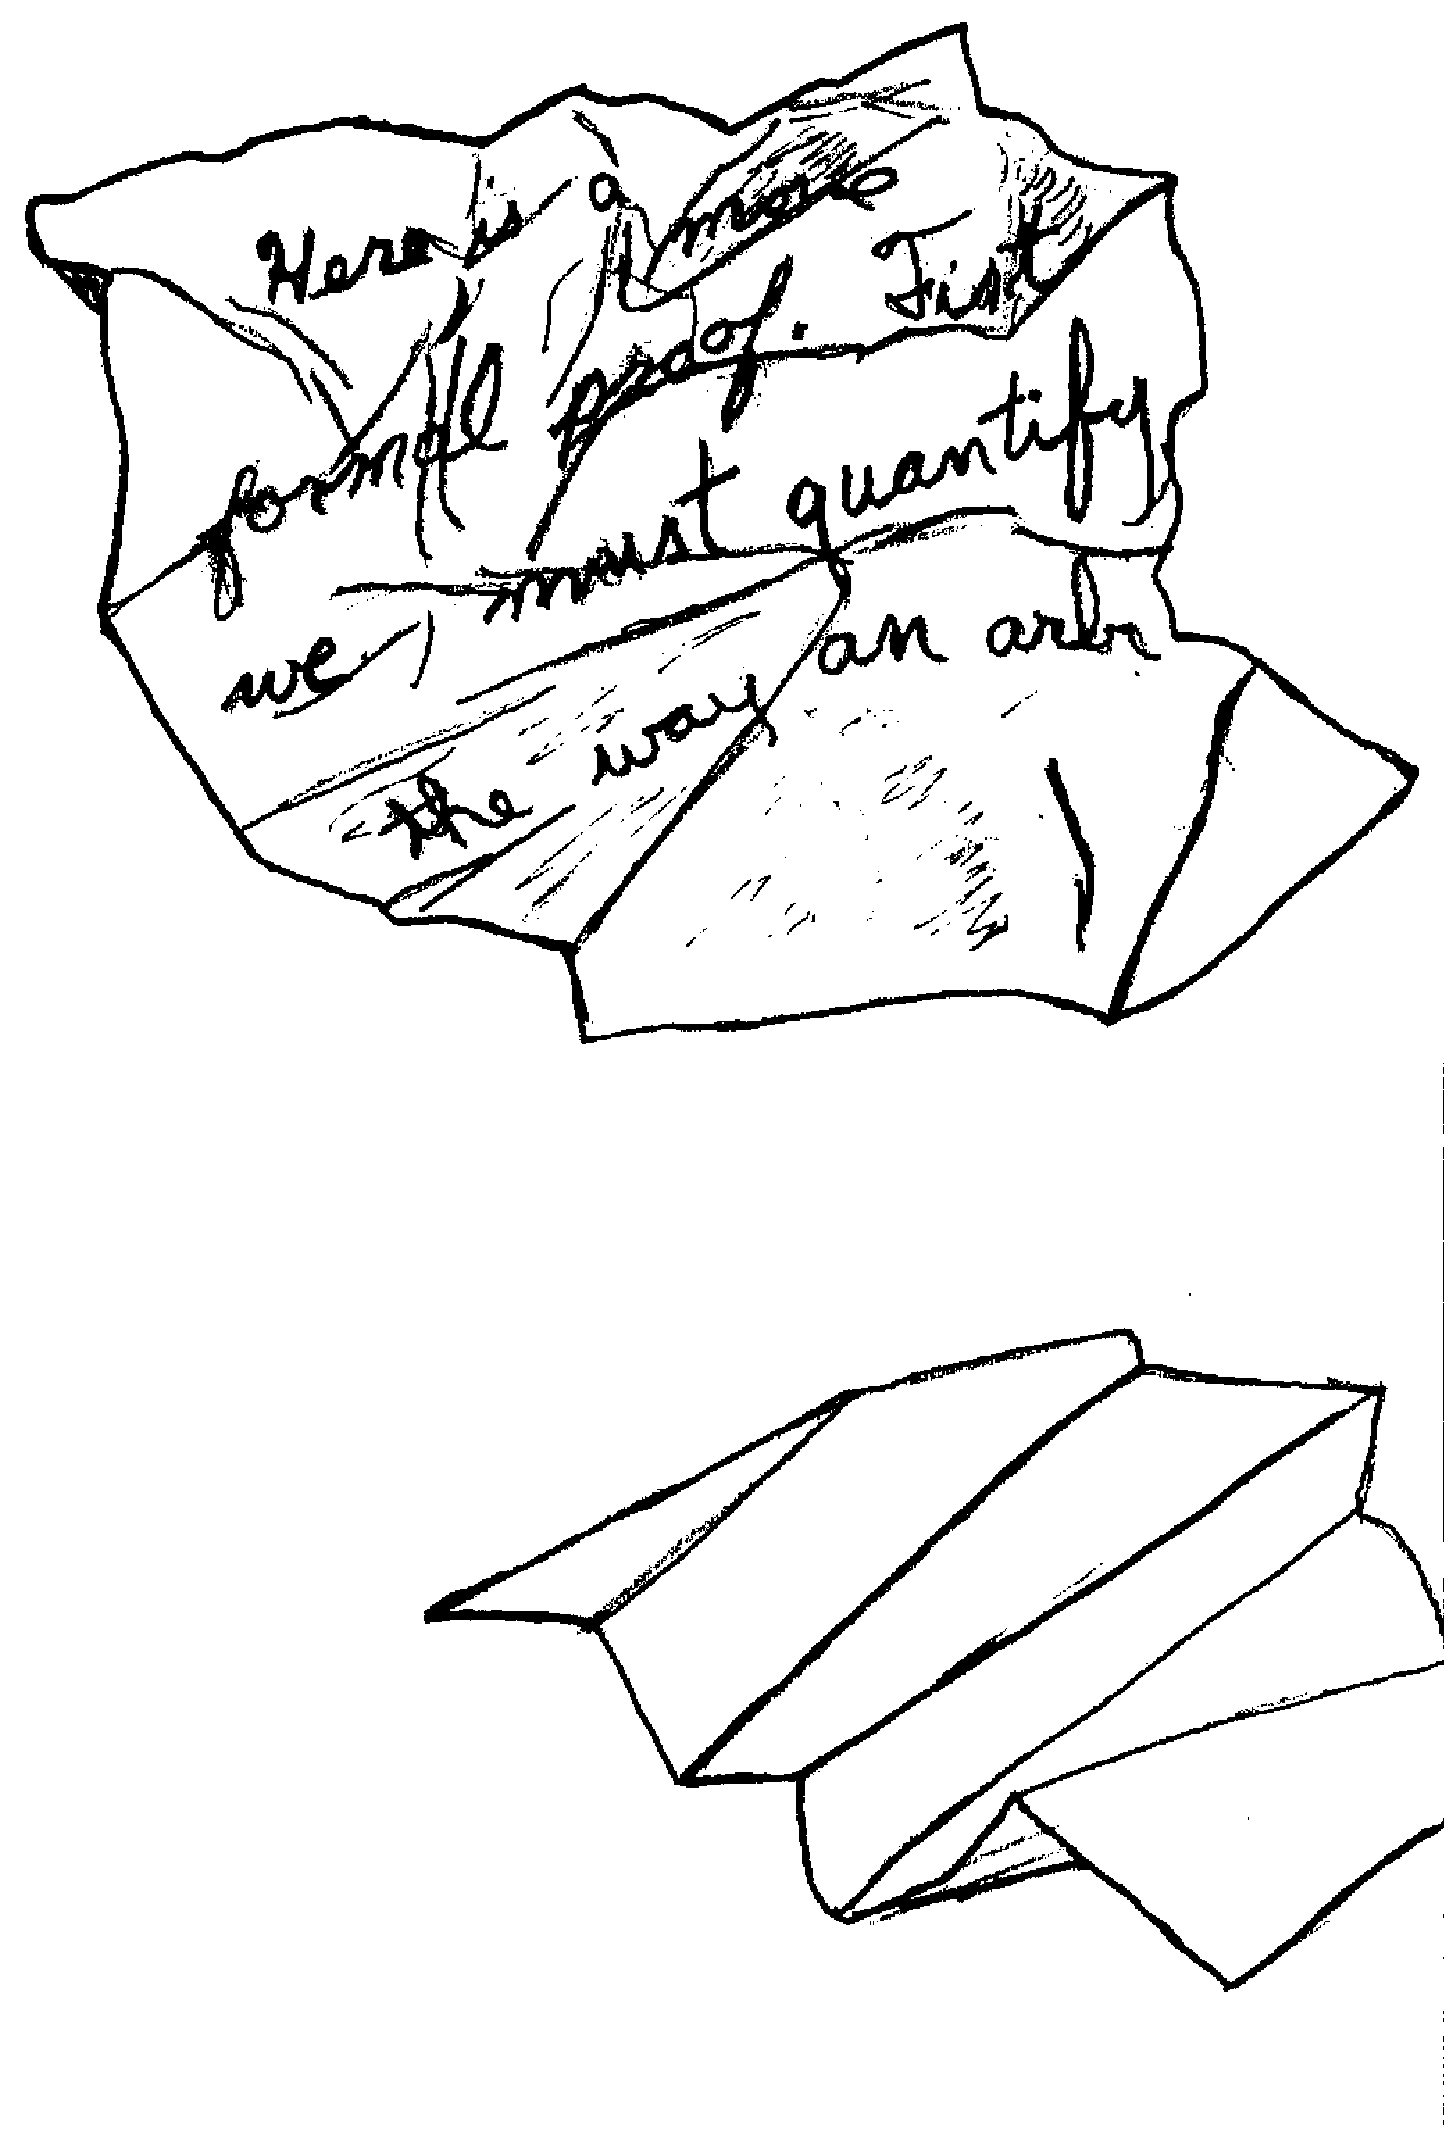 Here is a more
formal proof. Fist
we must quantify
the way an arbr